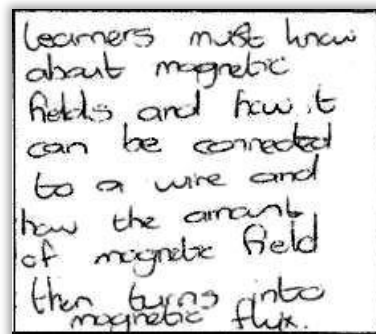 learners must know
about magnetic
fields and how it
can be connected
to a wire and
how the amount
of magnetic field
then turns into
magnetic flux.